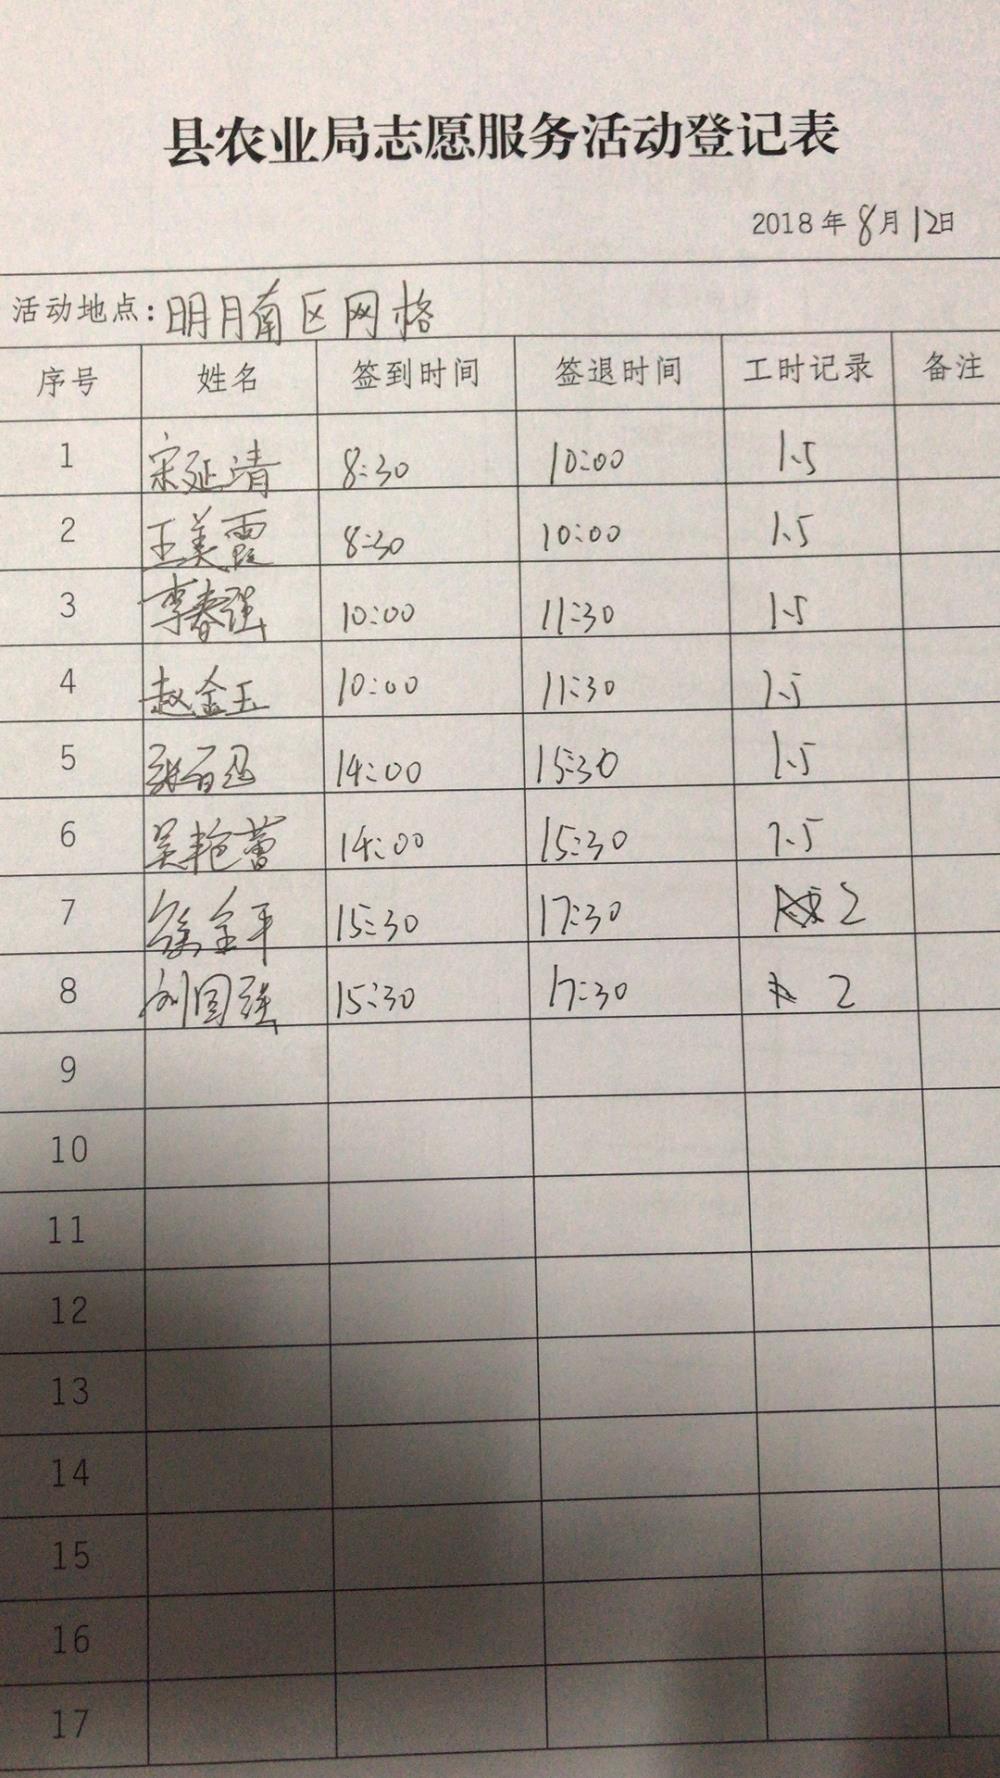 县农业局志愿服务活动登记表
2018年8月12日
活动地点:明月南区网格
序号 姓名 签到时间 签退时间 工时记录 备注
1 宋延靖 8:30 10:00 1.5
2 王美霞 8:30 10:00 1.5
3 李春强 10:00 11:30 1.5
4 赵金玉 10:00 11:30 1.5
5 14:00 15:30 1.5
6 吴艳蕾 14:00 15:30 1.5
7 徐金平 15:30 17:30 2
8 刘国强 15:30 17:30 2
9
10
11
12
13
14
15
16
17